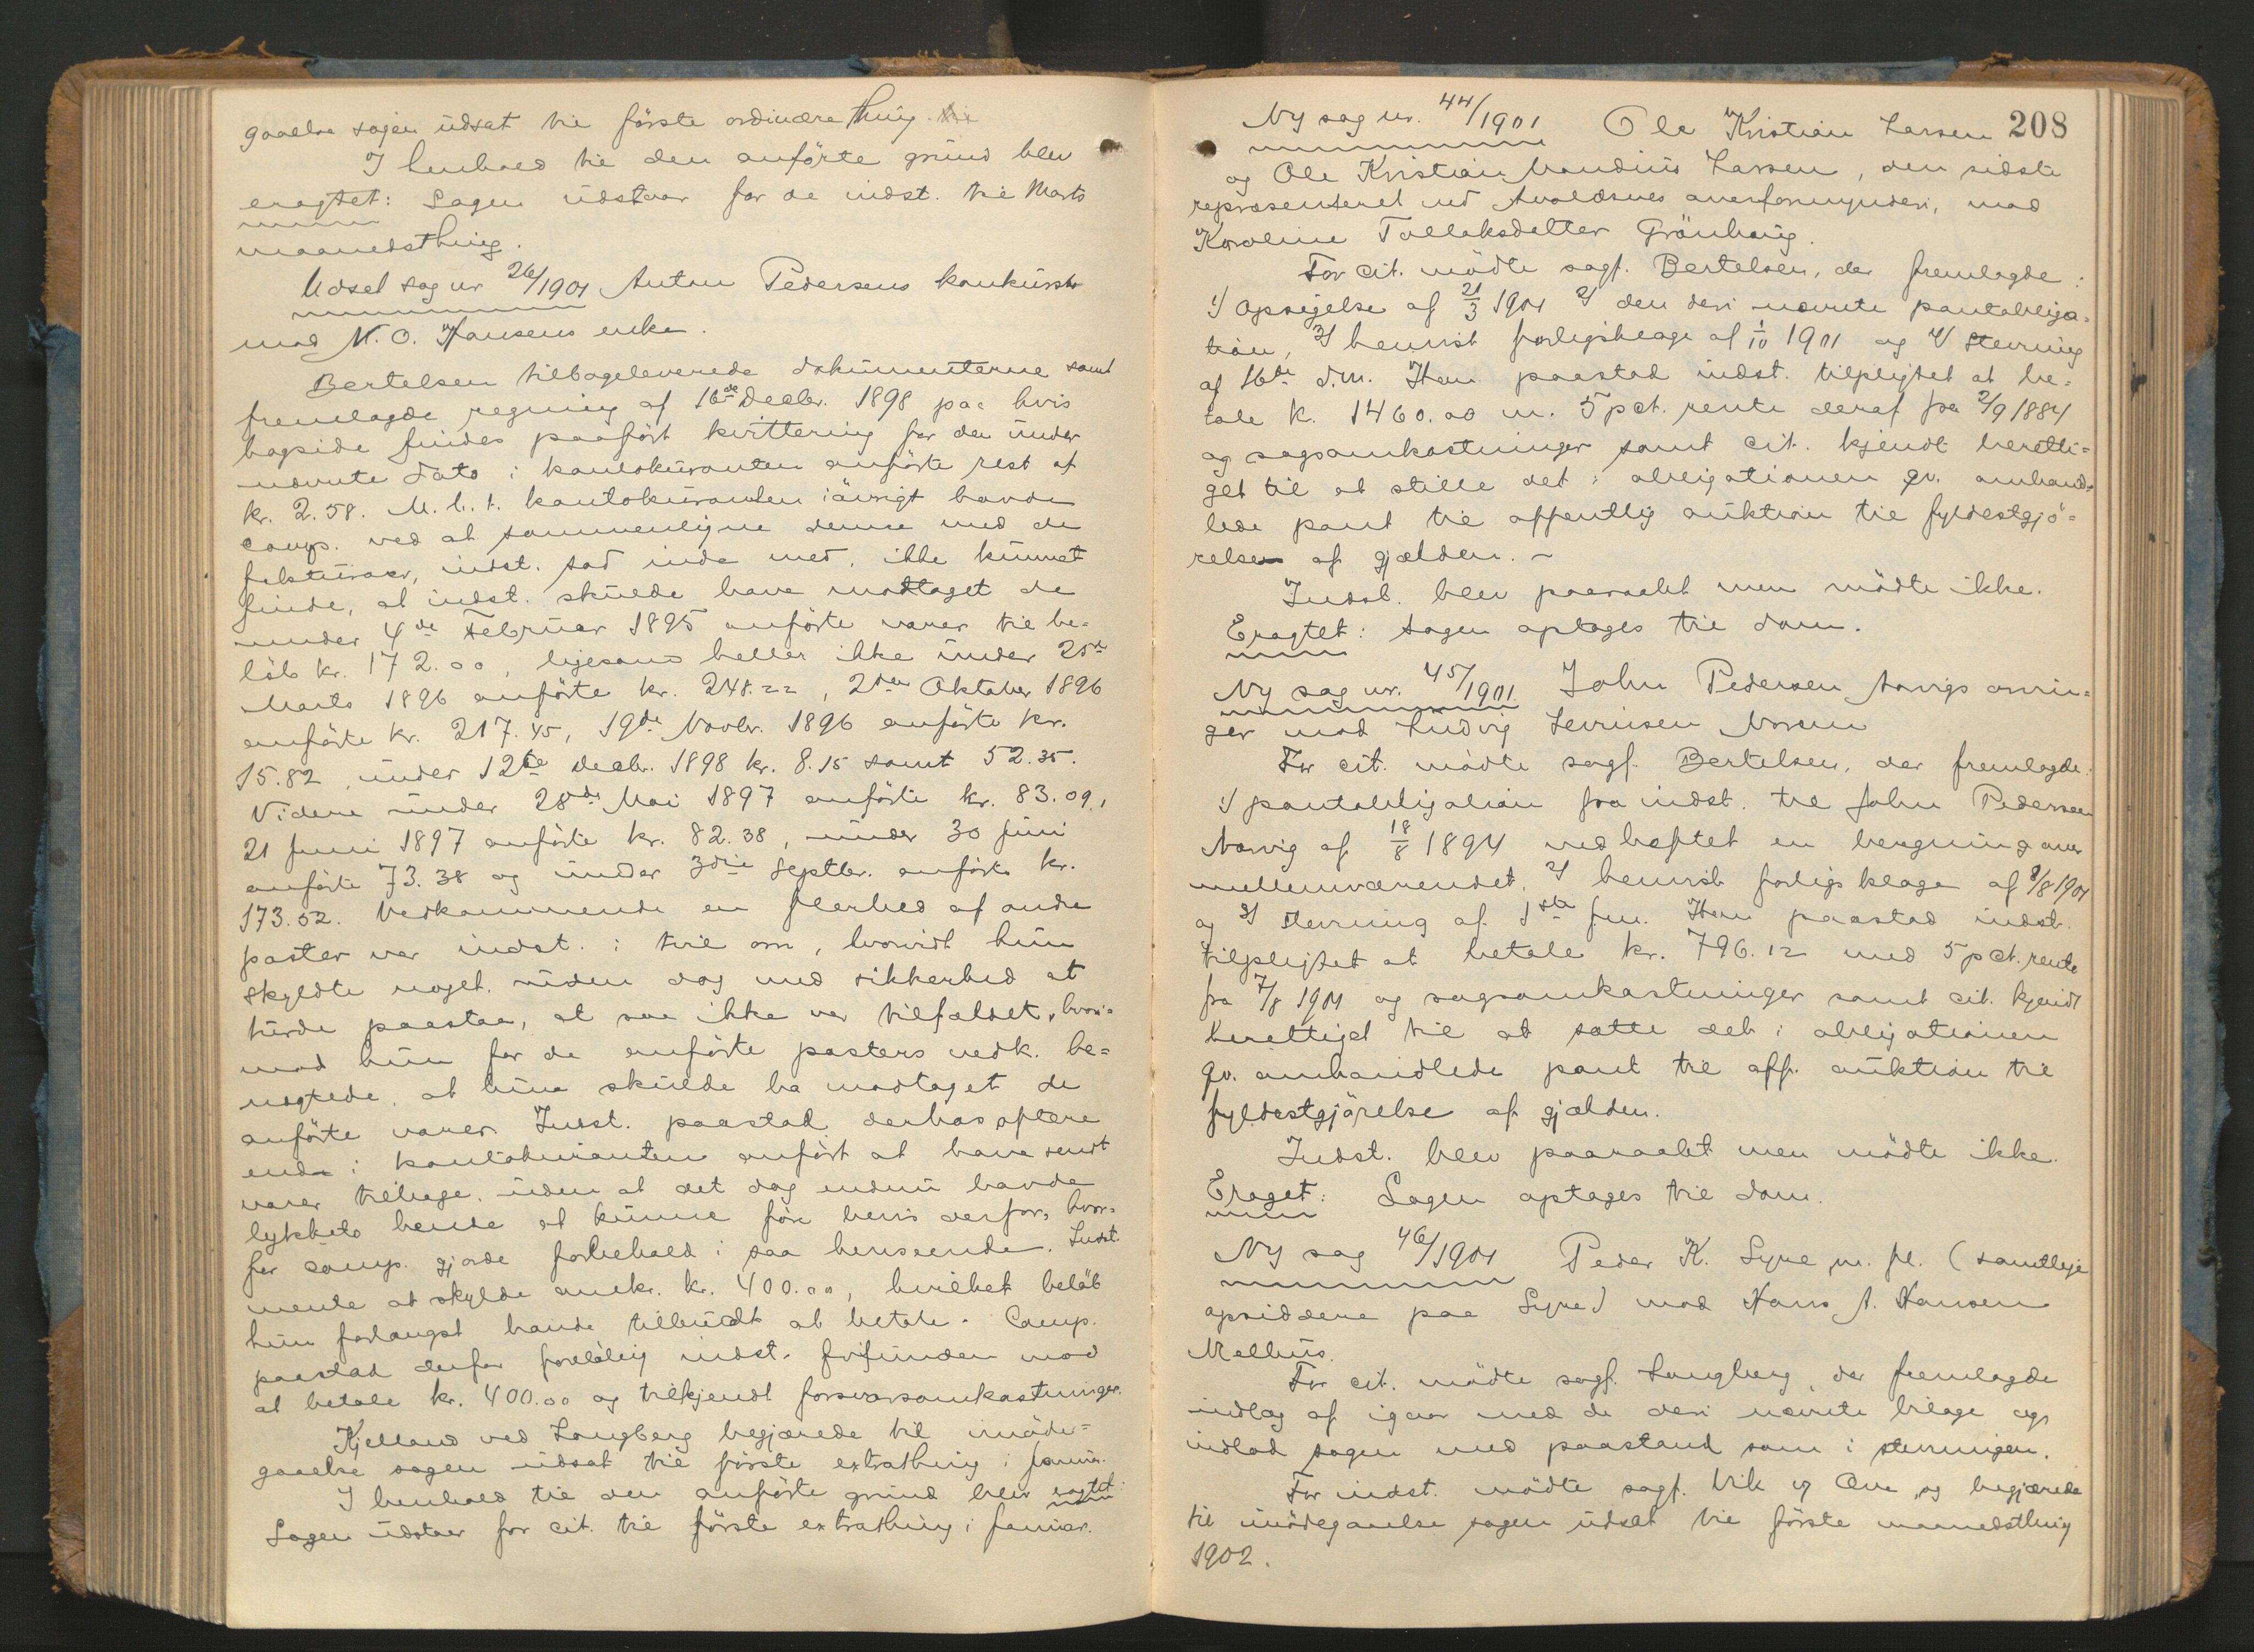 gaaelse sagen udsat til første ordinære thing.
I henhold til den anførte grund blev
eragtet: Sagen udstaar for de indst. til Marts
maanedsthing.
Udsat sag nr 26/1901 Anton Pedersens konkursbo
mod N. O. Hansens enke.
Bertelsen tilbageleverede dokumenterne samt
fremlagde regning af 16de Decbr. 1898 paa hvis
bagside findes paaført kvittering for den under
nævnte dato i kontokuranten anførte rest af
kr. 2.58. M. h. t. kontokuranten iøvrigt havde
comp. ved at sammenligne denne med de
fakturaer, indst. sad inde med, ikke kunnet
finde, at indst. skulde have modtaget de
under 4de Februar 1895 anførte varer til be-
løb kr. 172.00, ligesom heller ikke under 25de
Marts 1896 anførte kr. 248.22, 2den Oktober 1896
anførte kr. 217.45, 19de Novbr. 1896 anførte kr.
15.82, under 12te decbr. 1898 kr. 8.15 samt 52.35.
Videre under 28de Mai 1897 anførte kr. 83.09,
21 Juni 1897 anførte kr. 82.38, under 30 Juni
anførte 73.38 og under 3die Septbr. anførte kr.
173.52. Vedkommende en flerhed af andre
poster var indst. i tvil om, hvorvidt hun
skyldte noget, uden dog med sikkerhed at
turde paastaa, at saa ikke var tilfældet, hvori-
mod hun for de anførte posters vedk. be-
nægtede, at hun skulde ha modtaget de
anførte varer. Indst. paastod derhos oftere
end i kontokuranten anført at have sendt
varer tilbage, uden at det dog endnu havde
lykkets hende at kunne føre bevis derfor, hvor-
for comp. gjorde forbehold i saa henseende. Indst.
mente at skylde omkr. kr. 400.00, hvilket beløb
hun forlængst havde tilbudt at betale. Comp.
paastod derfor foreløbig indst. frifunden mod
at betale kr. 400.00 og tilkjendt forsvarsomkostninger.
Kjelland ved Langberg begjærede til imøde-
gaaelse sagen udsat til første extrathing i Januar.
I henhold til den anførte grund blev eragtet:
Sagen udstaar for cit. til første extrathing i Januar.
208
Ny sag nr. 44/1901 Ole Kristian Larsen
og Ole Kristian Larsen, den sidste
repræsenteret ved Avaldsnes overformynderi, mod
Karoline Tollaksdatter Grønhaug.
For cit. mødte sagf. Bertelsen, der fremlagde:
1/ Opsigelse af 21/3 1901 2/ den deri nævnte pantobliga-
tion, 3/ henvist forligsklage af 1/10 1901 og 4/ Stevning
af 16de d.m. Han paastod indst. tilpligtet at be-
tale k. 1460.00 m. 5 pct. rente deraf fra 2/9 1884
og sagsomkostninger samt cit. kjendt beretti-
get til at stille det i obligationen qv. omhand-
lede pant til offentlig auktion til fyldestgjø-
relse af gjælden. -
Indst. blev paaraabt men mødte ikke.
Eragtet: Sagen optages til dom.
Ny sag nr. 45/1901 John Pedersen arvin-
ger mod Ludvig
For cit. mødte sagf. Bertelsen, der fremlagde:
1/ pantobligation fra indst. til John Pedersen
af 18/8 1894 vedheftet en beregning over
mellemværendet, 2/ henvist forligsklage af 8/8 1901
og 3/ Stevning af 1ste f.m. Han paastod indst.
tilpligtet at betale kr. 796.12 med 5 pct. rente
fra 7/8 1901 og sagsomkostninger samt cit. kjendt
berettiget til at sætte det i obligationen
qv. omhandlede pant til off. auktion til
fyldestgjørelse af gjælden.
Indst. blev paaraabt men mødte ikke.
Eraget: Sagen optages til dom.
Ny sag 46/1901 Peder K. Syre m. fl. (samtlige
opsiddere paa Syre) mod Hans A. Hansen
Melhus.
For cit. mødte sagf. Langberg, der fremlagde
indlæg af igaar med de deri nævnte bilage og
indlod sagen med paastand som i stevningen.
For indst. mødte sagf. Vik og begjærede
til imødegaaelse sagen udsat til første maanedsthing
1902.